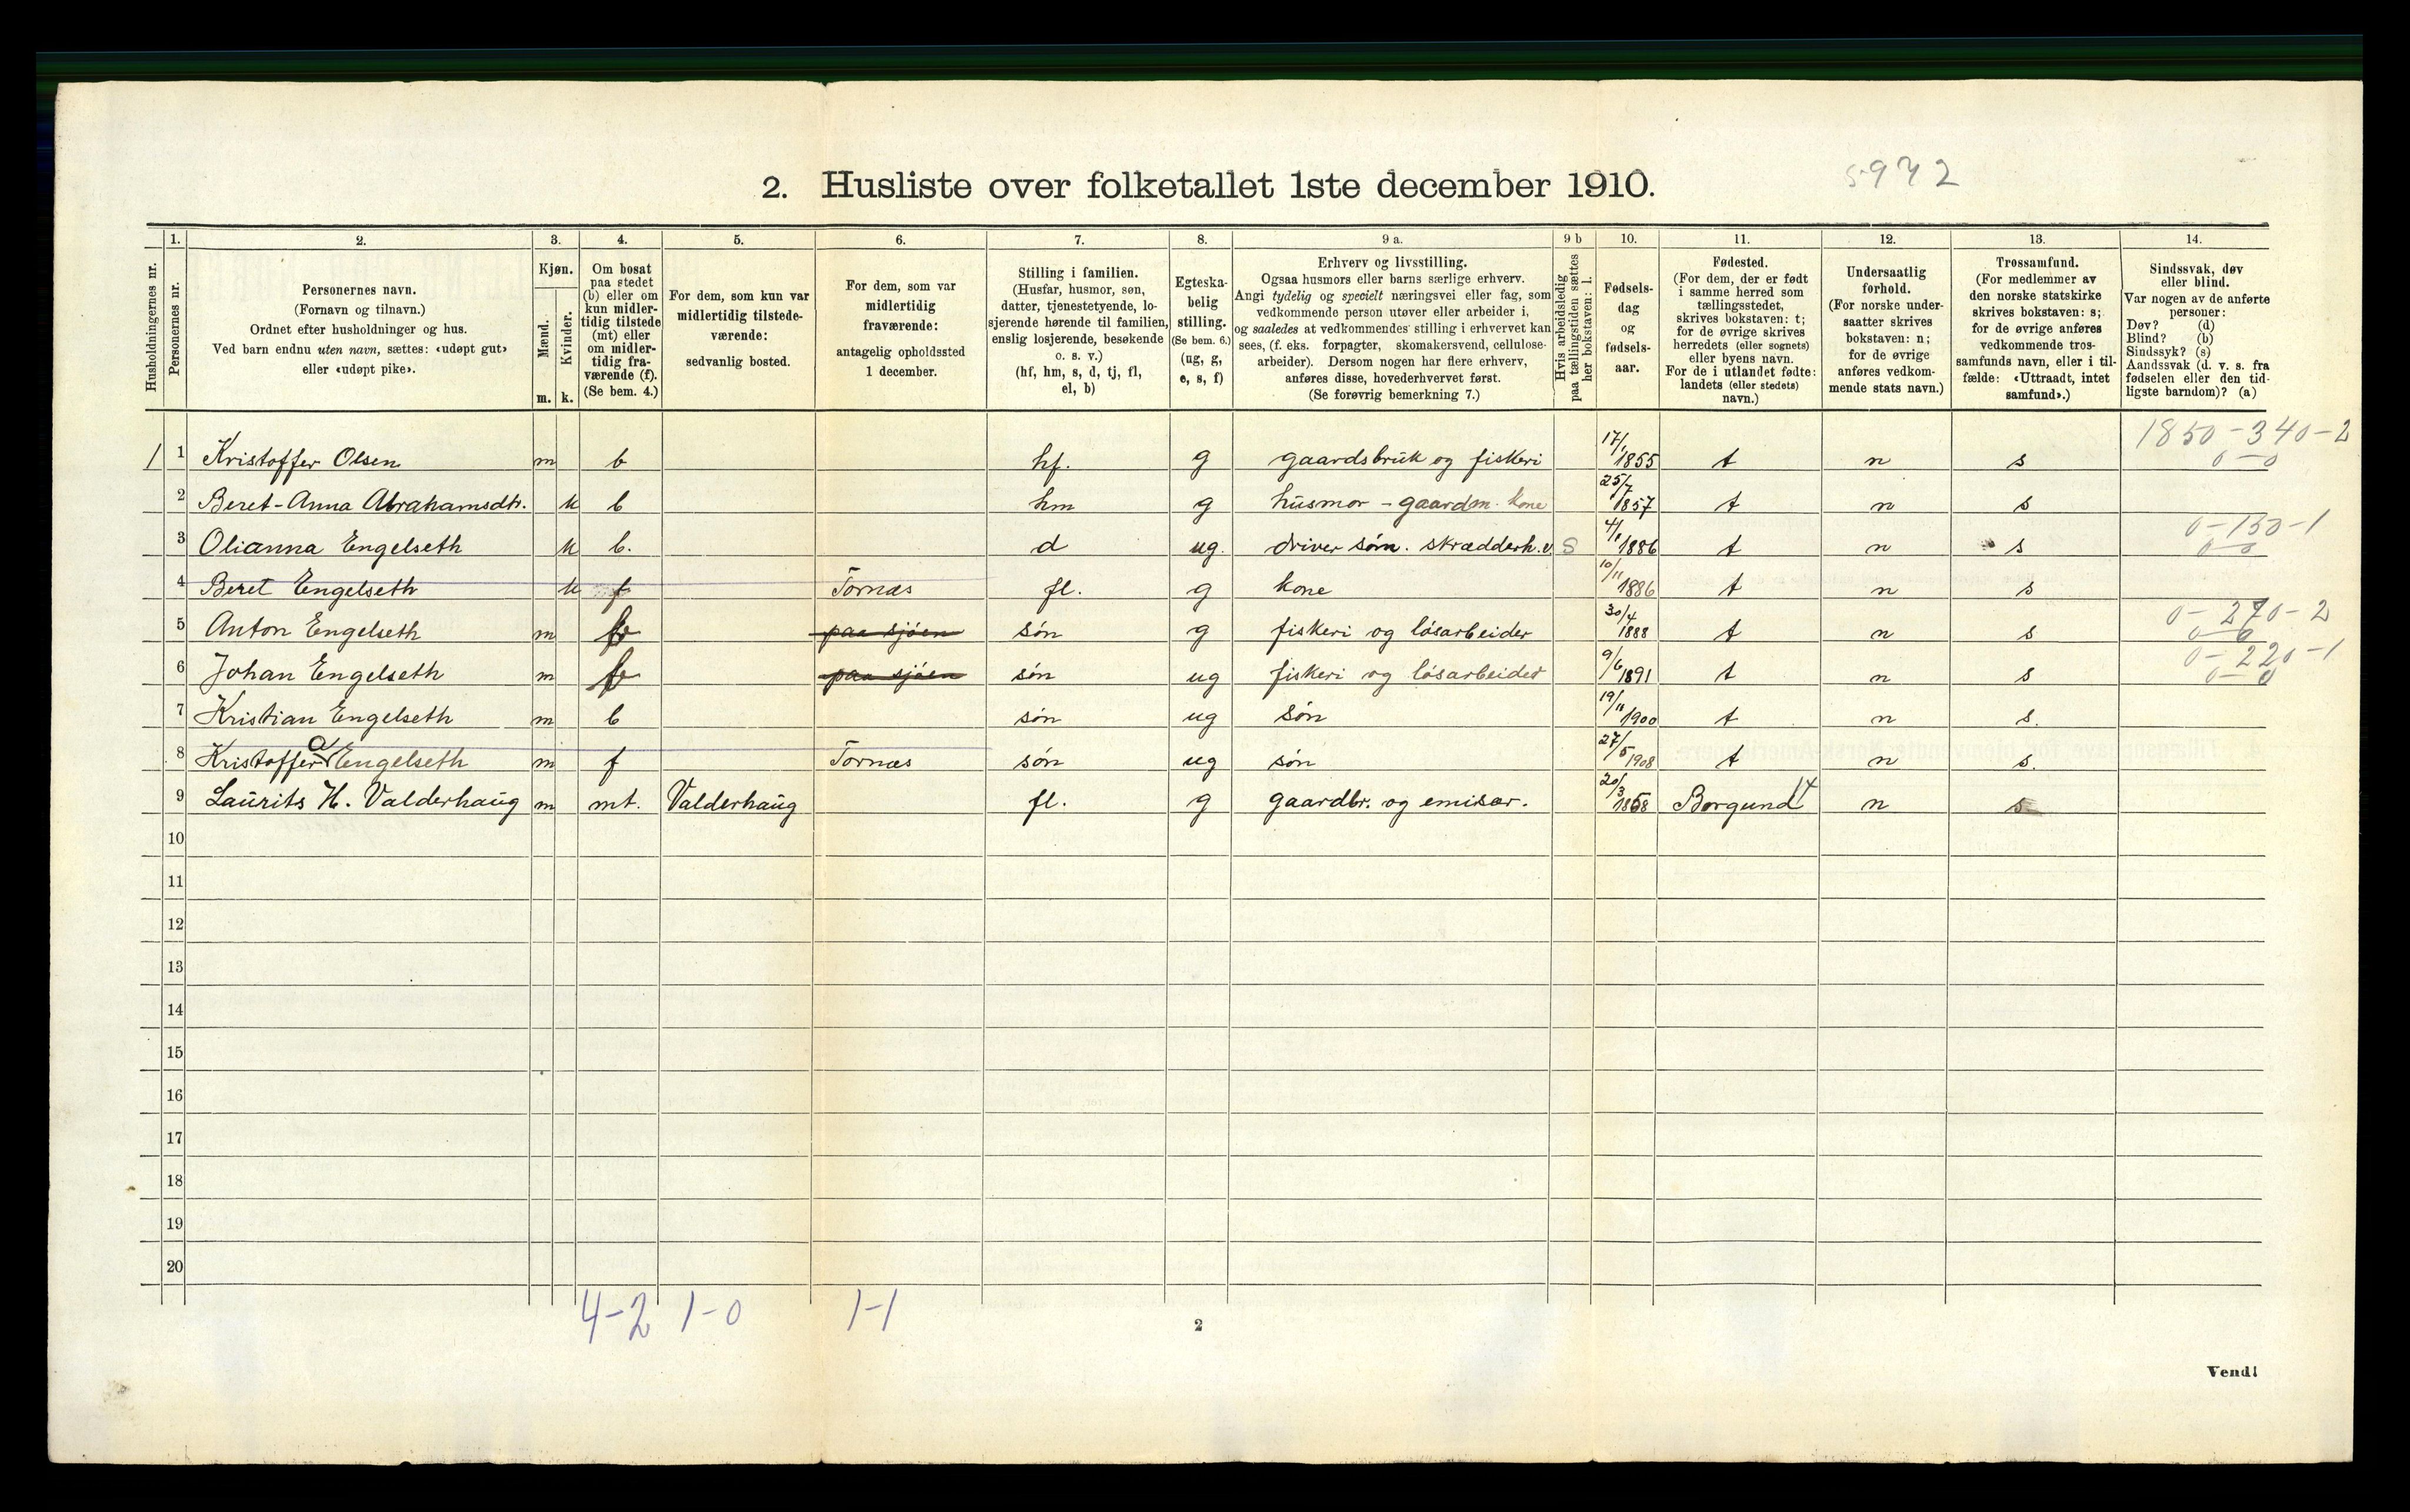 2. Husliste over folketallet 1ste december 1910.
5972
Husholdningernes nr.
1.
Personernes nr.
2.
Personernes navn.
(Fornavn og tilnavn.)
Ordnet efter husholdninger og hus.
Ved barn endnu uten navn, sættes: «udøpt gut»
eller «udøpt pike».
3.
Kjøn.
Mænd.
Kvinder.
m. k.
4.
Om bosat
paa stedet
(b) eller om
kun midler-
tidig tilstede
(mt) eller
om midler-
tidig fra-
værende (f).
(Se bem. 4.)
5.
For dem, som kun var
midlertidig tilstede-
værende:
sedvanlig bosted.
6.
For dem, som var
midlertidig
fraværende:
antagelig opholdssted
1 december.
7.
Stilling i familien.
(Husfar, husmor, søn,
datter, tjenestetyende, lo-
sjerende hørende til familien,
enslig losjerende, besøkende
o. s. v.)
(hf, hm, s, d, tj, fl,
el, b)
8.
Egteska-
belig
stilling.
(Se bem. 6.)
(ug, g,
e, s, f)
9 a.
Erhverv og livsstilling.
Ogsaa husmors eller barns særlige erhverv.
Angi tydelig og specielt næringsvei eller fag, som
vedkommende person utøver eller arbeider i,
og saaledes at vedkommendes stilling i erhvervet kan
sees, (f. eks. forpagter, skomakersvend, cellulose-
arbeider). Dersom nogen har flere erhverv,
anføres disse, hovederhvervet først.
(Se forøvrig bemerkning 7.)
9 b
Hvis arbeidsledig
paa tællingstiden sættes
her bokstaven: l.
10.
Fødsels-
dag
og
fødsels-
aar.
11.
Fødested.
(For dem, der er født
i samme herred som
tællingsstedet,
skrives bokstaven: t;
for de øvrige skrives
herredets (eller sognets)
eller byens navn.
For de i utlandet fødte:
landets (eller stedets)
navn.)
12.
Undersaatlig
forhold.
(For norske under-
saatter skrives
bokstaven: n;
for de øvrige
anføres vedkom-
mende stats navn.)
13.
Trossamfund.
(For medlemmer av
den norske statskirke
skrives bokstaven: s;
for de øvrige anføres
vedkommende tros-
samfunds navn, eller i til-
fælde: «Uttraadt, intet
samfund».)
14.
Sindssvak, døv
eller blind.
Var nogen av de anførte
personer:
Døv? (d)
Blind? (b)
Sindssyk? (s)
Aandssvak (d. v. s. fra
fødselen eller den tid-
ligste barndom)? (a)
1850-340-2
1 1 Kristoffer Olsen m b hf. g gaardsbruk og fiskeri 17/1 1855 t n s 0-0
2 Beret-Anna Abrahamsdtr. k b hm g husmor - gaardm. kone 25/7 1857 t n s
0-150-1
3 Olianna Engelseth k b. d ug. driver søm. skrædderh.v. S 4/1 1886 t n s 0-0
4 Beret Engelseth k f Tornæs fl. g kone 10/11 1886 t n s
0-270-2
5 Anton Engelseth m b paa sjøen søn g fiskeri og løsarbeider 30/4 1888 t n s 0-0
0-220-1
6 Johan Engelseth m b paa sjøen søn ug fiskeri og løsarbeider 9/6 1891 t n s 0-0
7 Kristian Engelseth m b søn ug søn 19/11 1900 t n s.
8 Kristoffer a Engelseth m f Tornæs søn ug søn 27/5 1908 t n s.
9 Laurits H. Valderhaug m mt. Valderhaug fl. g gaardbr. og emisær. 20/3 1868 Borgund 14 n s
10
11
12
13
14
15
16
17
18
19
20
4-2 1-0 1-1
2
Vend!